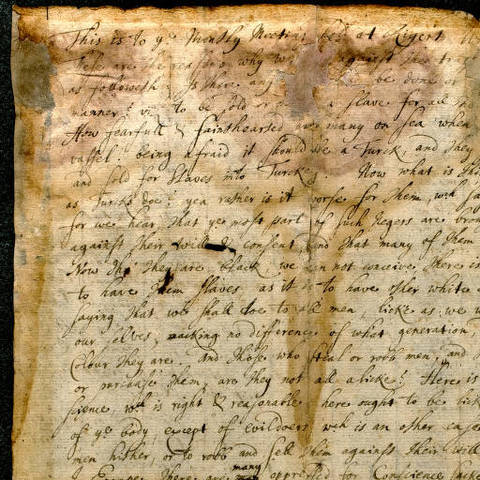 This is to ye Monthly Meeting held at Rigert
These are the reasons why we are against the tra
as followeth Is there any be done or
manner? viz to be sold or made a slave for all
How fearfull & fainthearted are many on sea when
vassel being afraid it should be a Turck, and they
and sold for slaves into Turckey Now what is this
as Turcks doe? yea rather is it worse for them, wch
for we hear, that ye most part of such Negers are bro
against their will & consent, and that many of them
Now tho they are black, we can not conceive there is
to have them slaves, as it is to have other white
saying that we shall doe to all men, licke as we
our selves, macking no difference of what generation,
Colour they are. And those who steal or robb men, and
or purchase them, are they not all alicke? Here is
science, wch is right & reasonable here ought to be lick
of ye body, except of evildoers, wch is an other case
men hither, or to robb and sell them against their will
Europe there are many oppressed for Conscience sacke